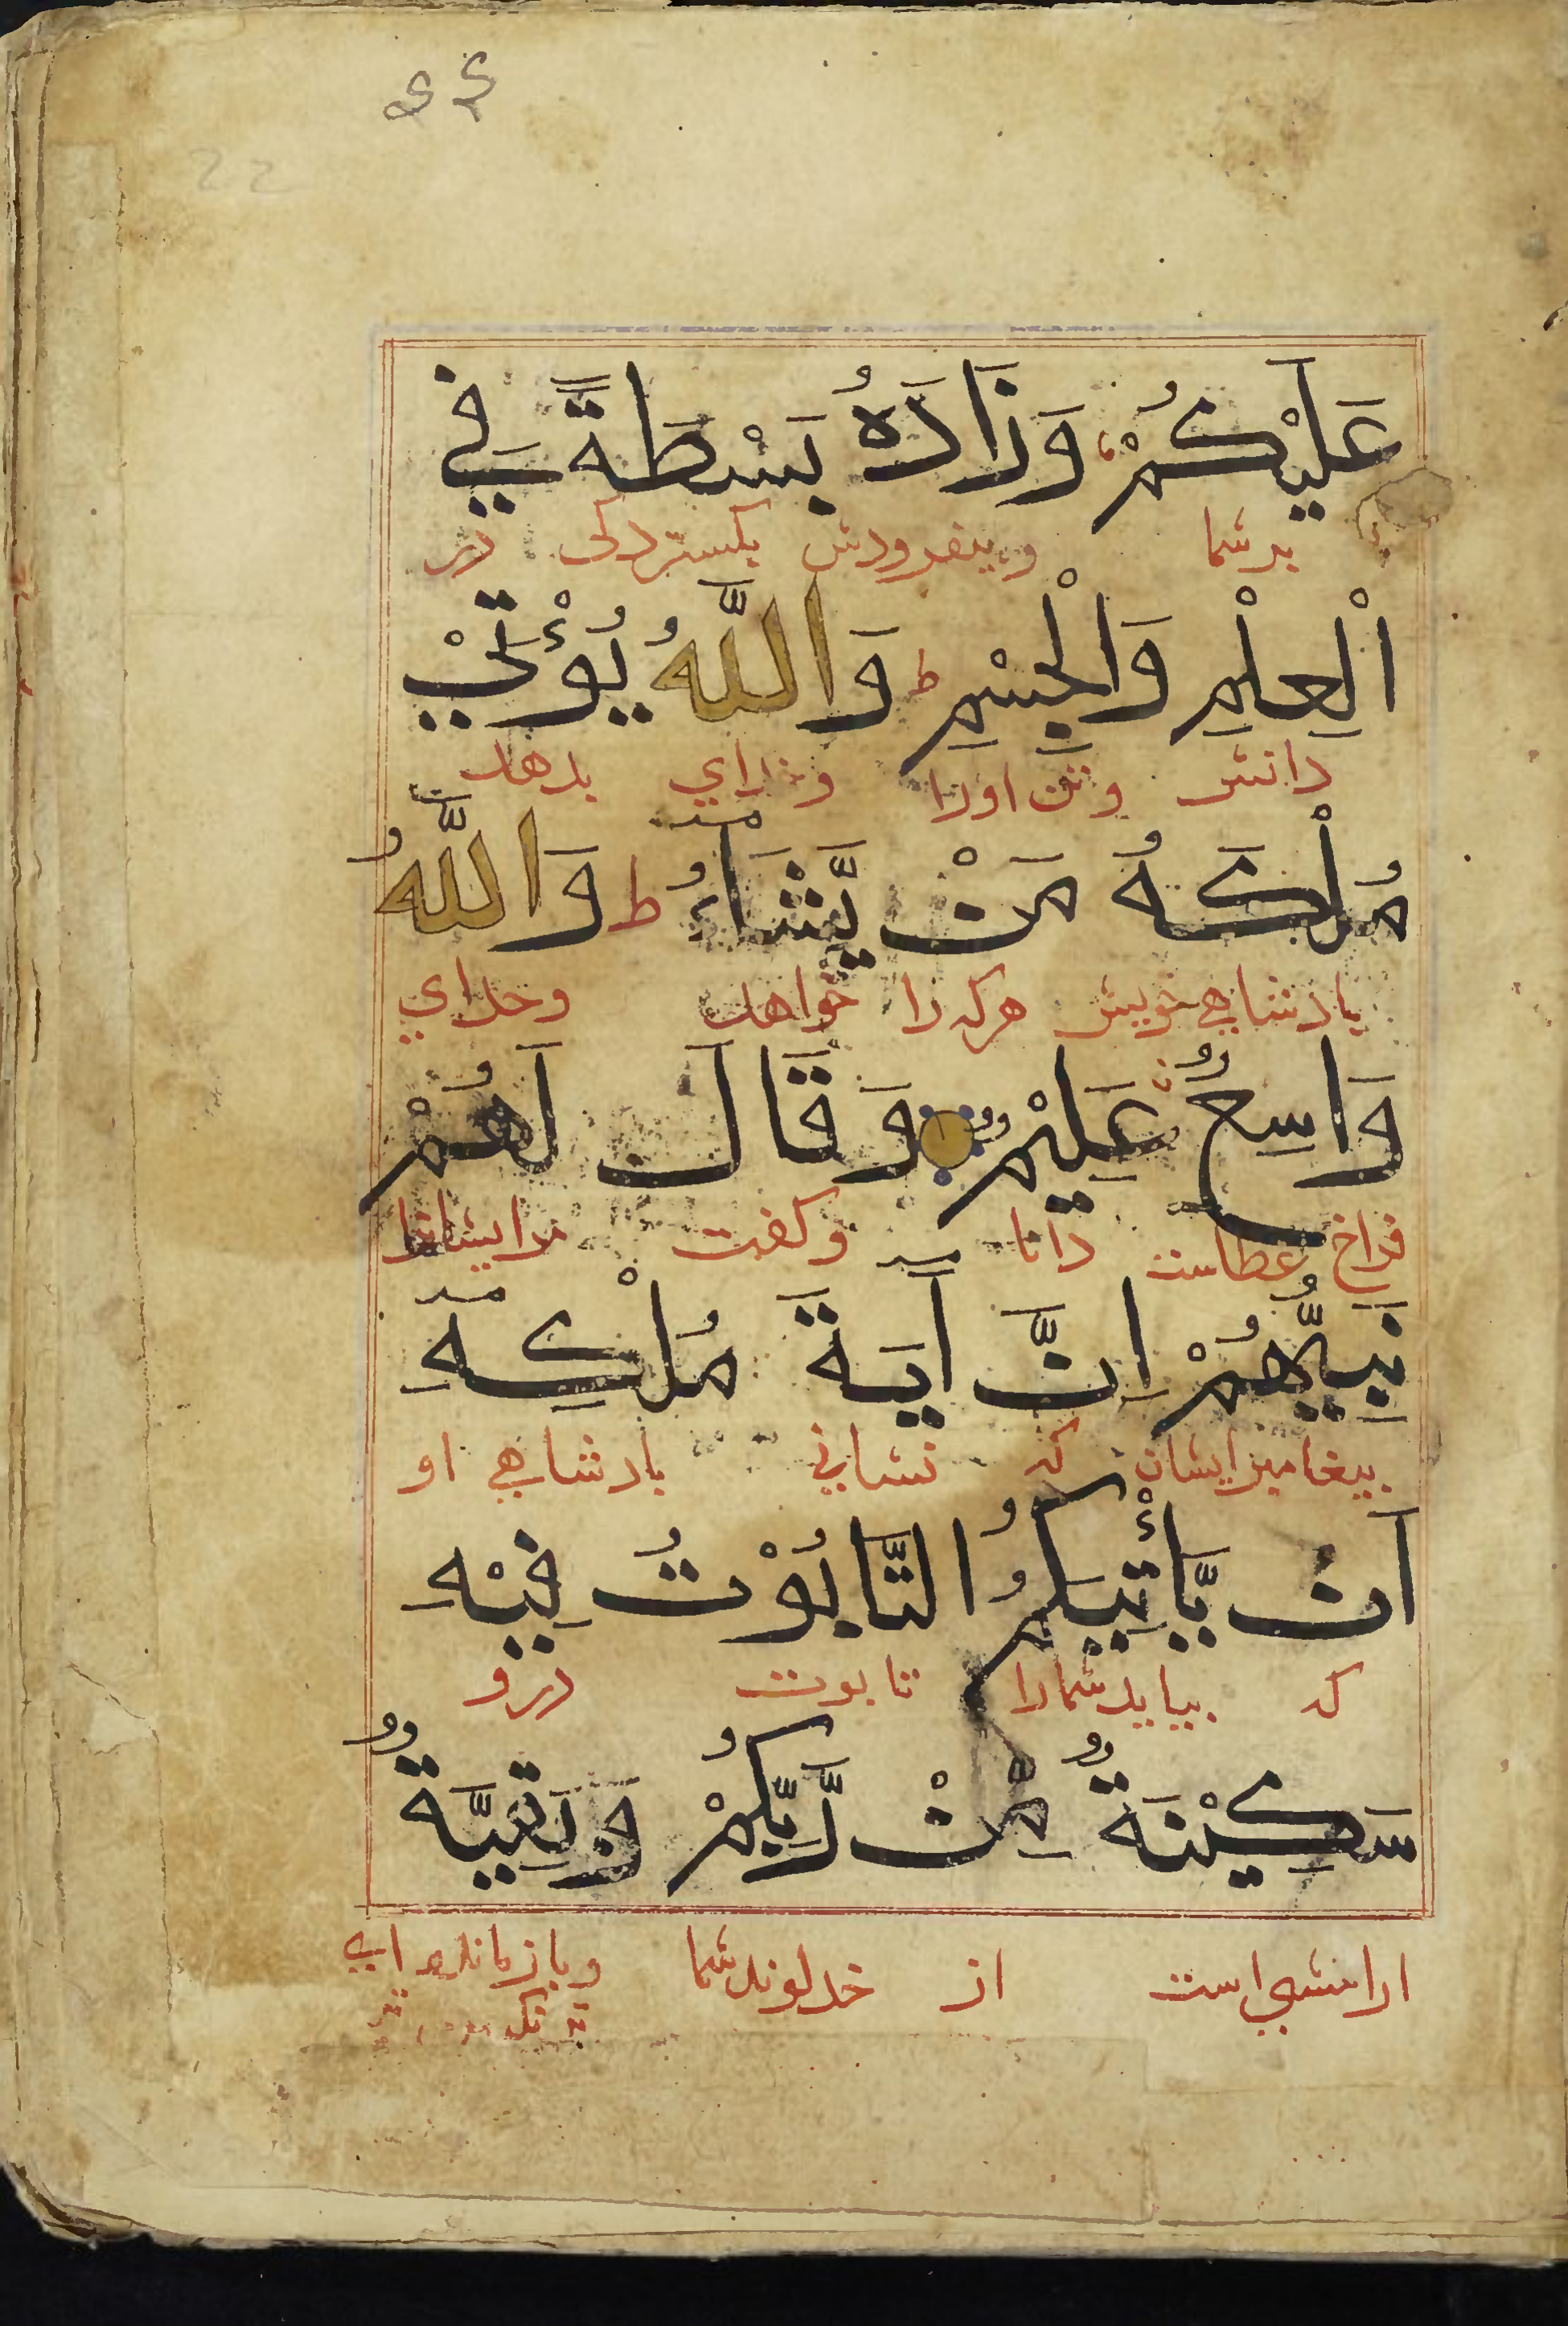 عَلَيْكُمْ وَزَادَهُ بَسْطَةً فِي
بر شما وبیفزودش بکستردکی در
اَلْعِلْمِ وَالْجِسْمِ ط وَاللّٰهُ يُؤْتِيْ
دانش وتن اورا وخدای بدهد
مُلْكَهُ مَنْ يَّشَاءُ ط وَاللّٰهُ
پادشاهی خویش هرکه را خواهد وخدای
وَاسِعٌ عَلِيْمٌ وَقَالَ لَهُمْ
فراخ عطاست دانا وکفت مرایشانرا
نَبِيُّهُمْ اِنَّ اٰيَةَ مُلْكِهٖ
پیغامبرایشان که نشانی پادشاهی او
اَنْ يَّأْتِيَكُمُ التَّابُوْتُ فِيْهِ
که بیاید شمارا تابوت درو
سَكِيْنَةٌ مِّنْ رَّبِّكُمْ وَبَقِيَّةٌ
ارامشی است از خداوند شما وبازمانده ای